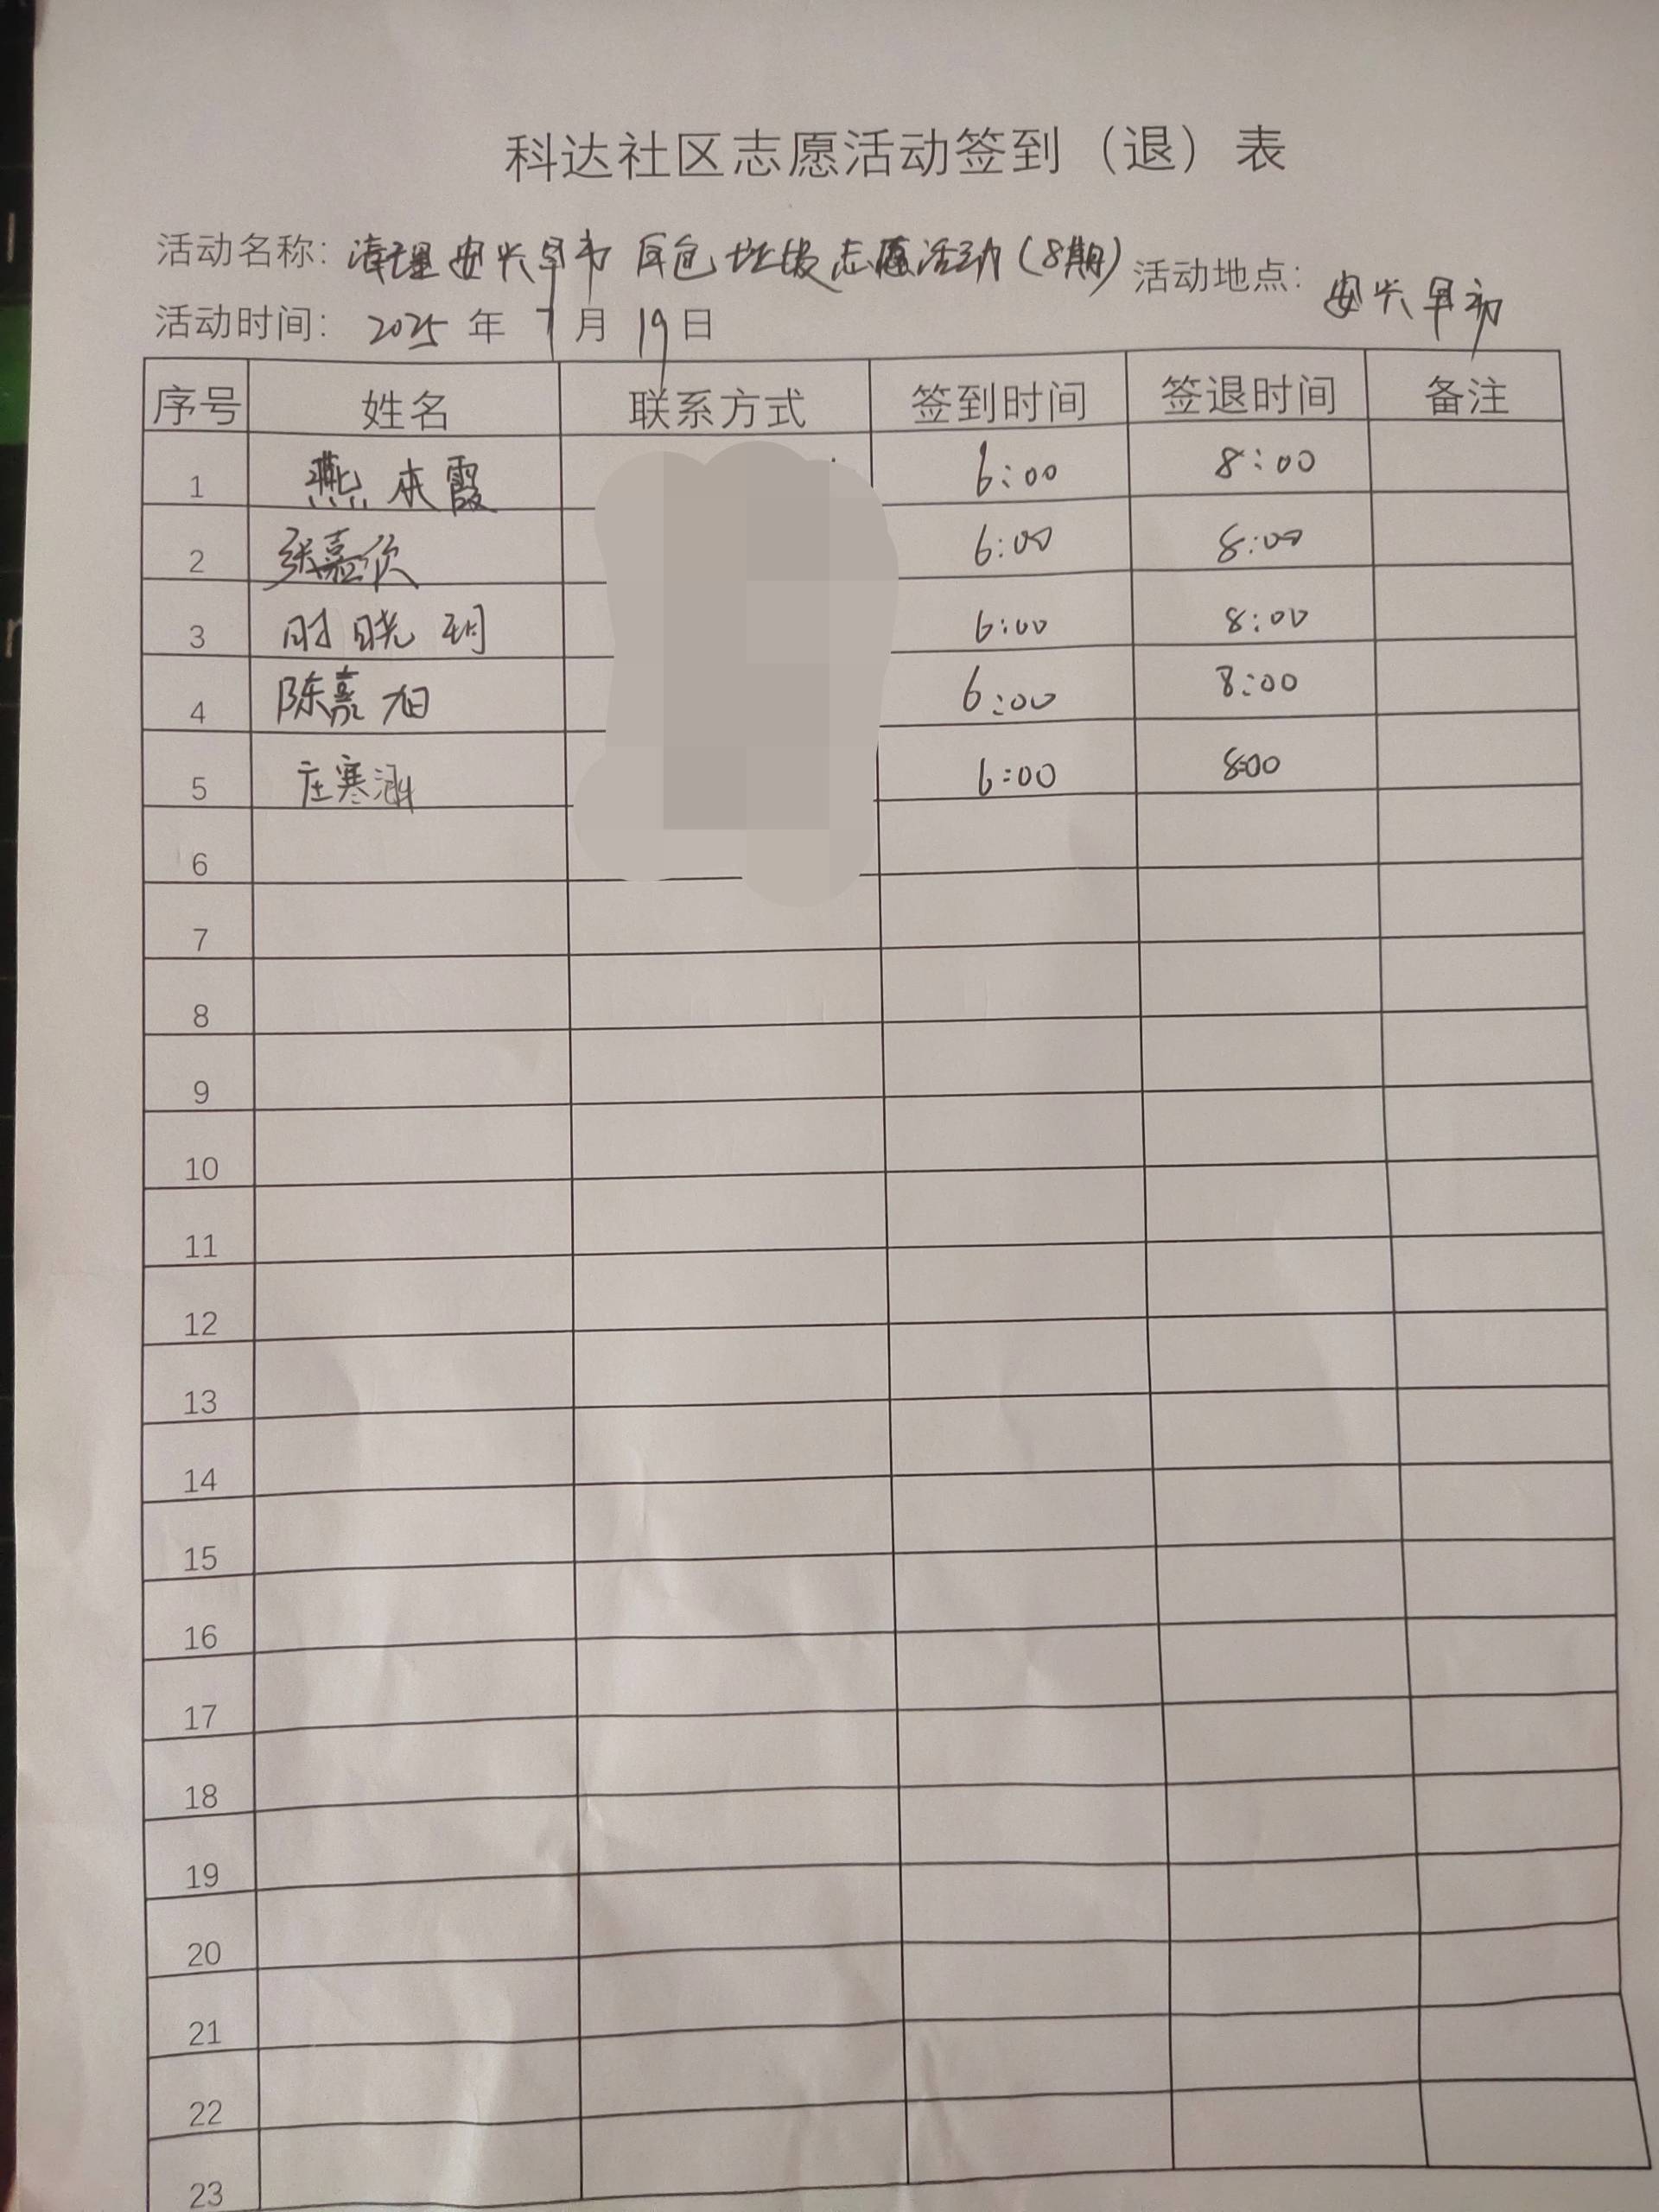 科达社区志愿活动签到（退）表
活动名称：清理安兴早市白色垃圾志愿活动（8期） 活动地点：安兴早市
活动时间：2025年7月19日
序号 姓名 联系方式 签到时间 签退时间 备注
1 燕本霞 6:00 8:00
2 张嘉欣 6:00 8:00
3 时晓玥 6:00 8:00
4 陈嘉旭 6:00 8:00
5 庄寒涵 6:00 8:00
6
7
8
9
10
11
12
13
14
15
16
17
18
19
20
21
22
23